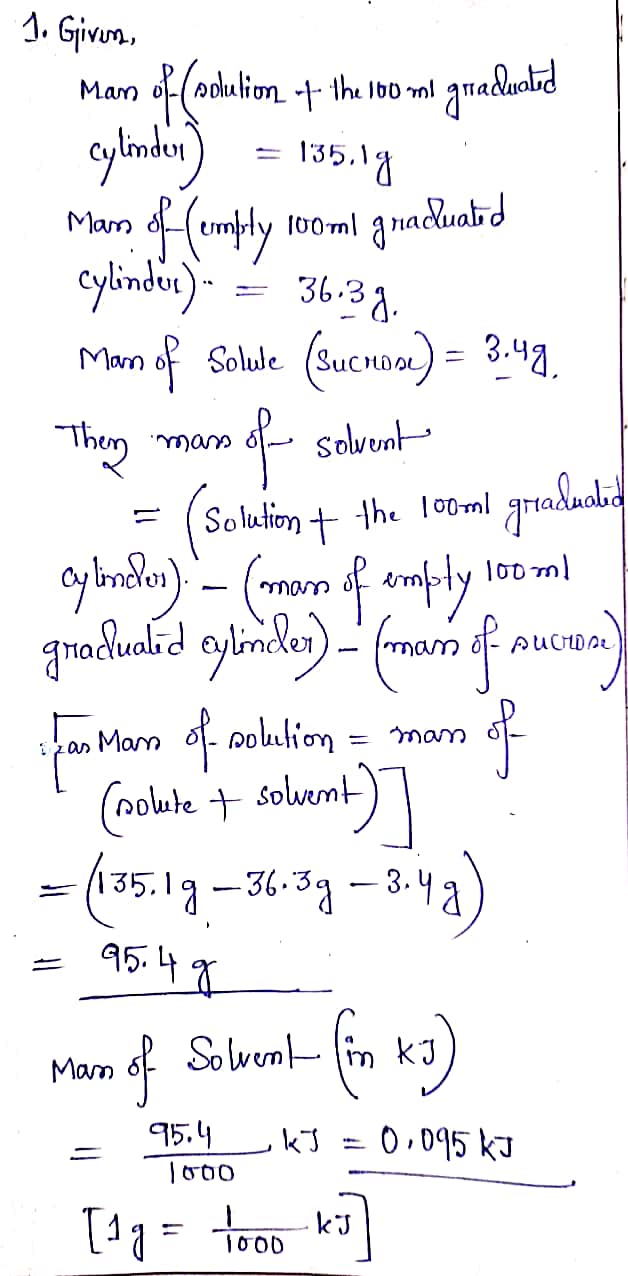 1. Given,
Mass of (solution + the 100 ml graduated
cylinder) = 135.1g
Mass of (empty 100ml graduated
cylinder) = 36.3 g.
Mass of Solute (Sucrose) = 3.4g.
Then mass of solvent
= (Solution + the 100ml graduated
cylinder) - (mass of empty 100 ml
graduated cylinder) - (mass of sucrose)
[as Mass of solution = mass of
(solute + solvent)]
= (135.1g - 36.3g - 3.4g)
= 95.4 g
Mass of Solvent (in kJ)
= 95.4/1000 kJ = 0.095 kJ
[1g = 1/1000 kJ]